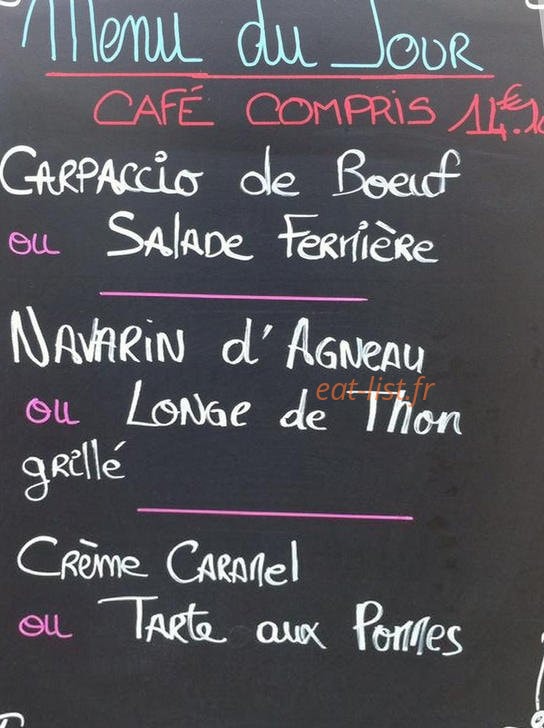 Menu du Jour
CAFÉ COMPRIS 14€.10
CARPACCIO de Boeuf
ou SALADE FERMIÈRE
NAVARIN d'AGNEAU
eat-list.fr
ou LONGE de Thon
grillé
CRÈME CARAMEL
ou TARTE aux POMMES